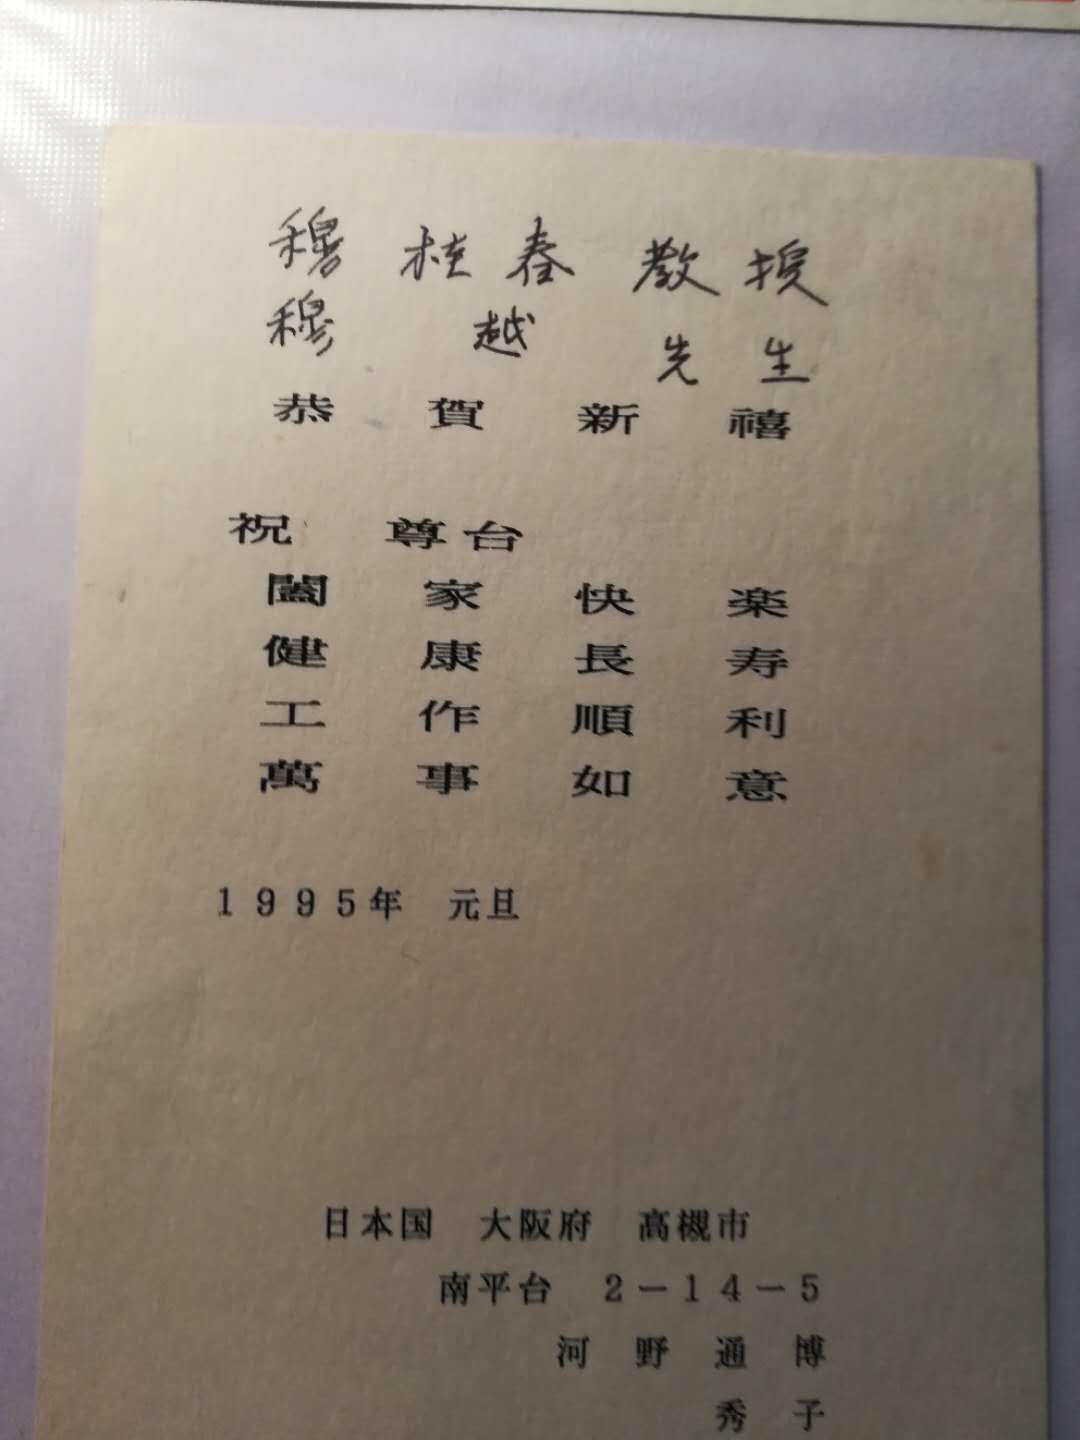 穆桂春教授
穆越先生
恭賀新禧
祝 尊台
闔家快楽
健康長寿
工作順利
萬事如意
1995年 元旦
日本国 大阪府 高槻市
南平台 2-14-5
河野通博
秀子